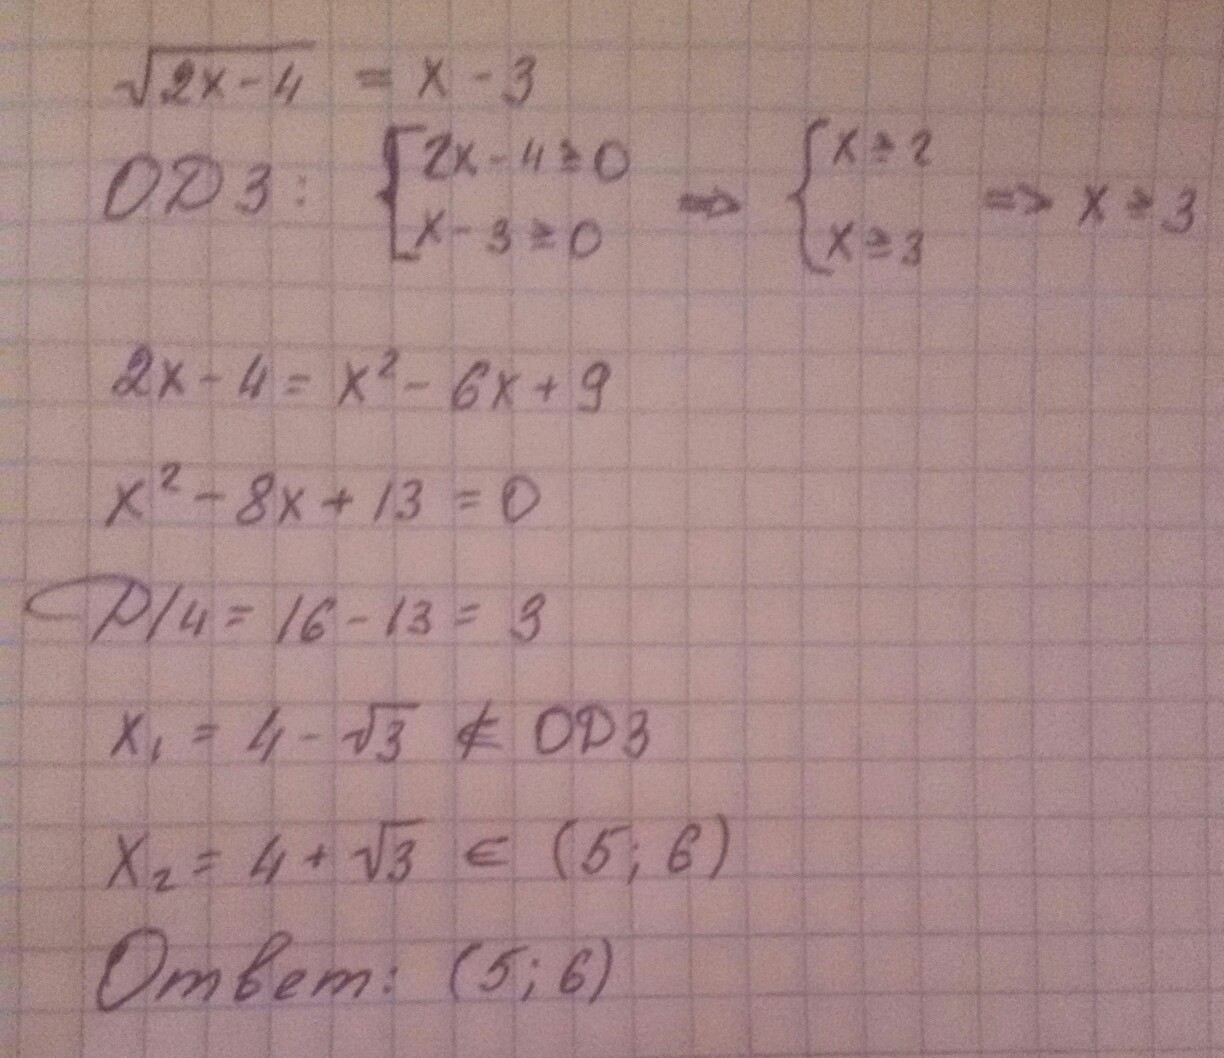 √(2x - 4) = x - 3
ОДЗ: { 2x - 4 ≥ 0 x - 3 ≥ 0 => { x ≥ 2 x ≥ 3 => x ≥ 3
2x - 4 = x² - 6x + 9
x² - 8x + 13 = 0
D/4 = 16 - 13 = 3
x₁ = 4 - √3 ∉ ОДЗ
x₂ = 4 + √3 ∈ (5; 6)
Ответ: (5; 6)